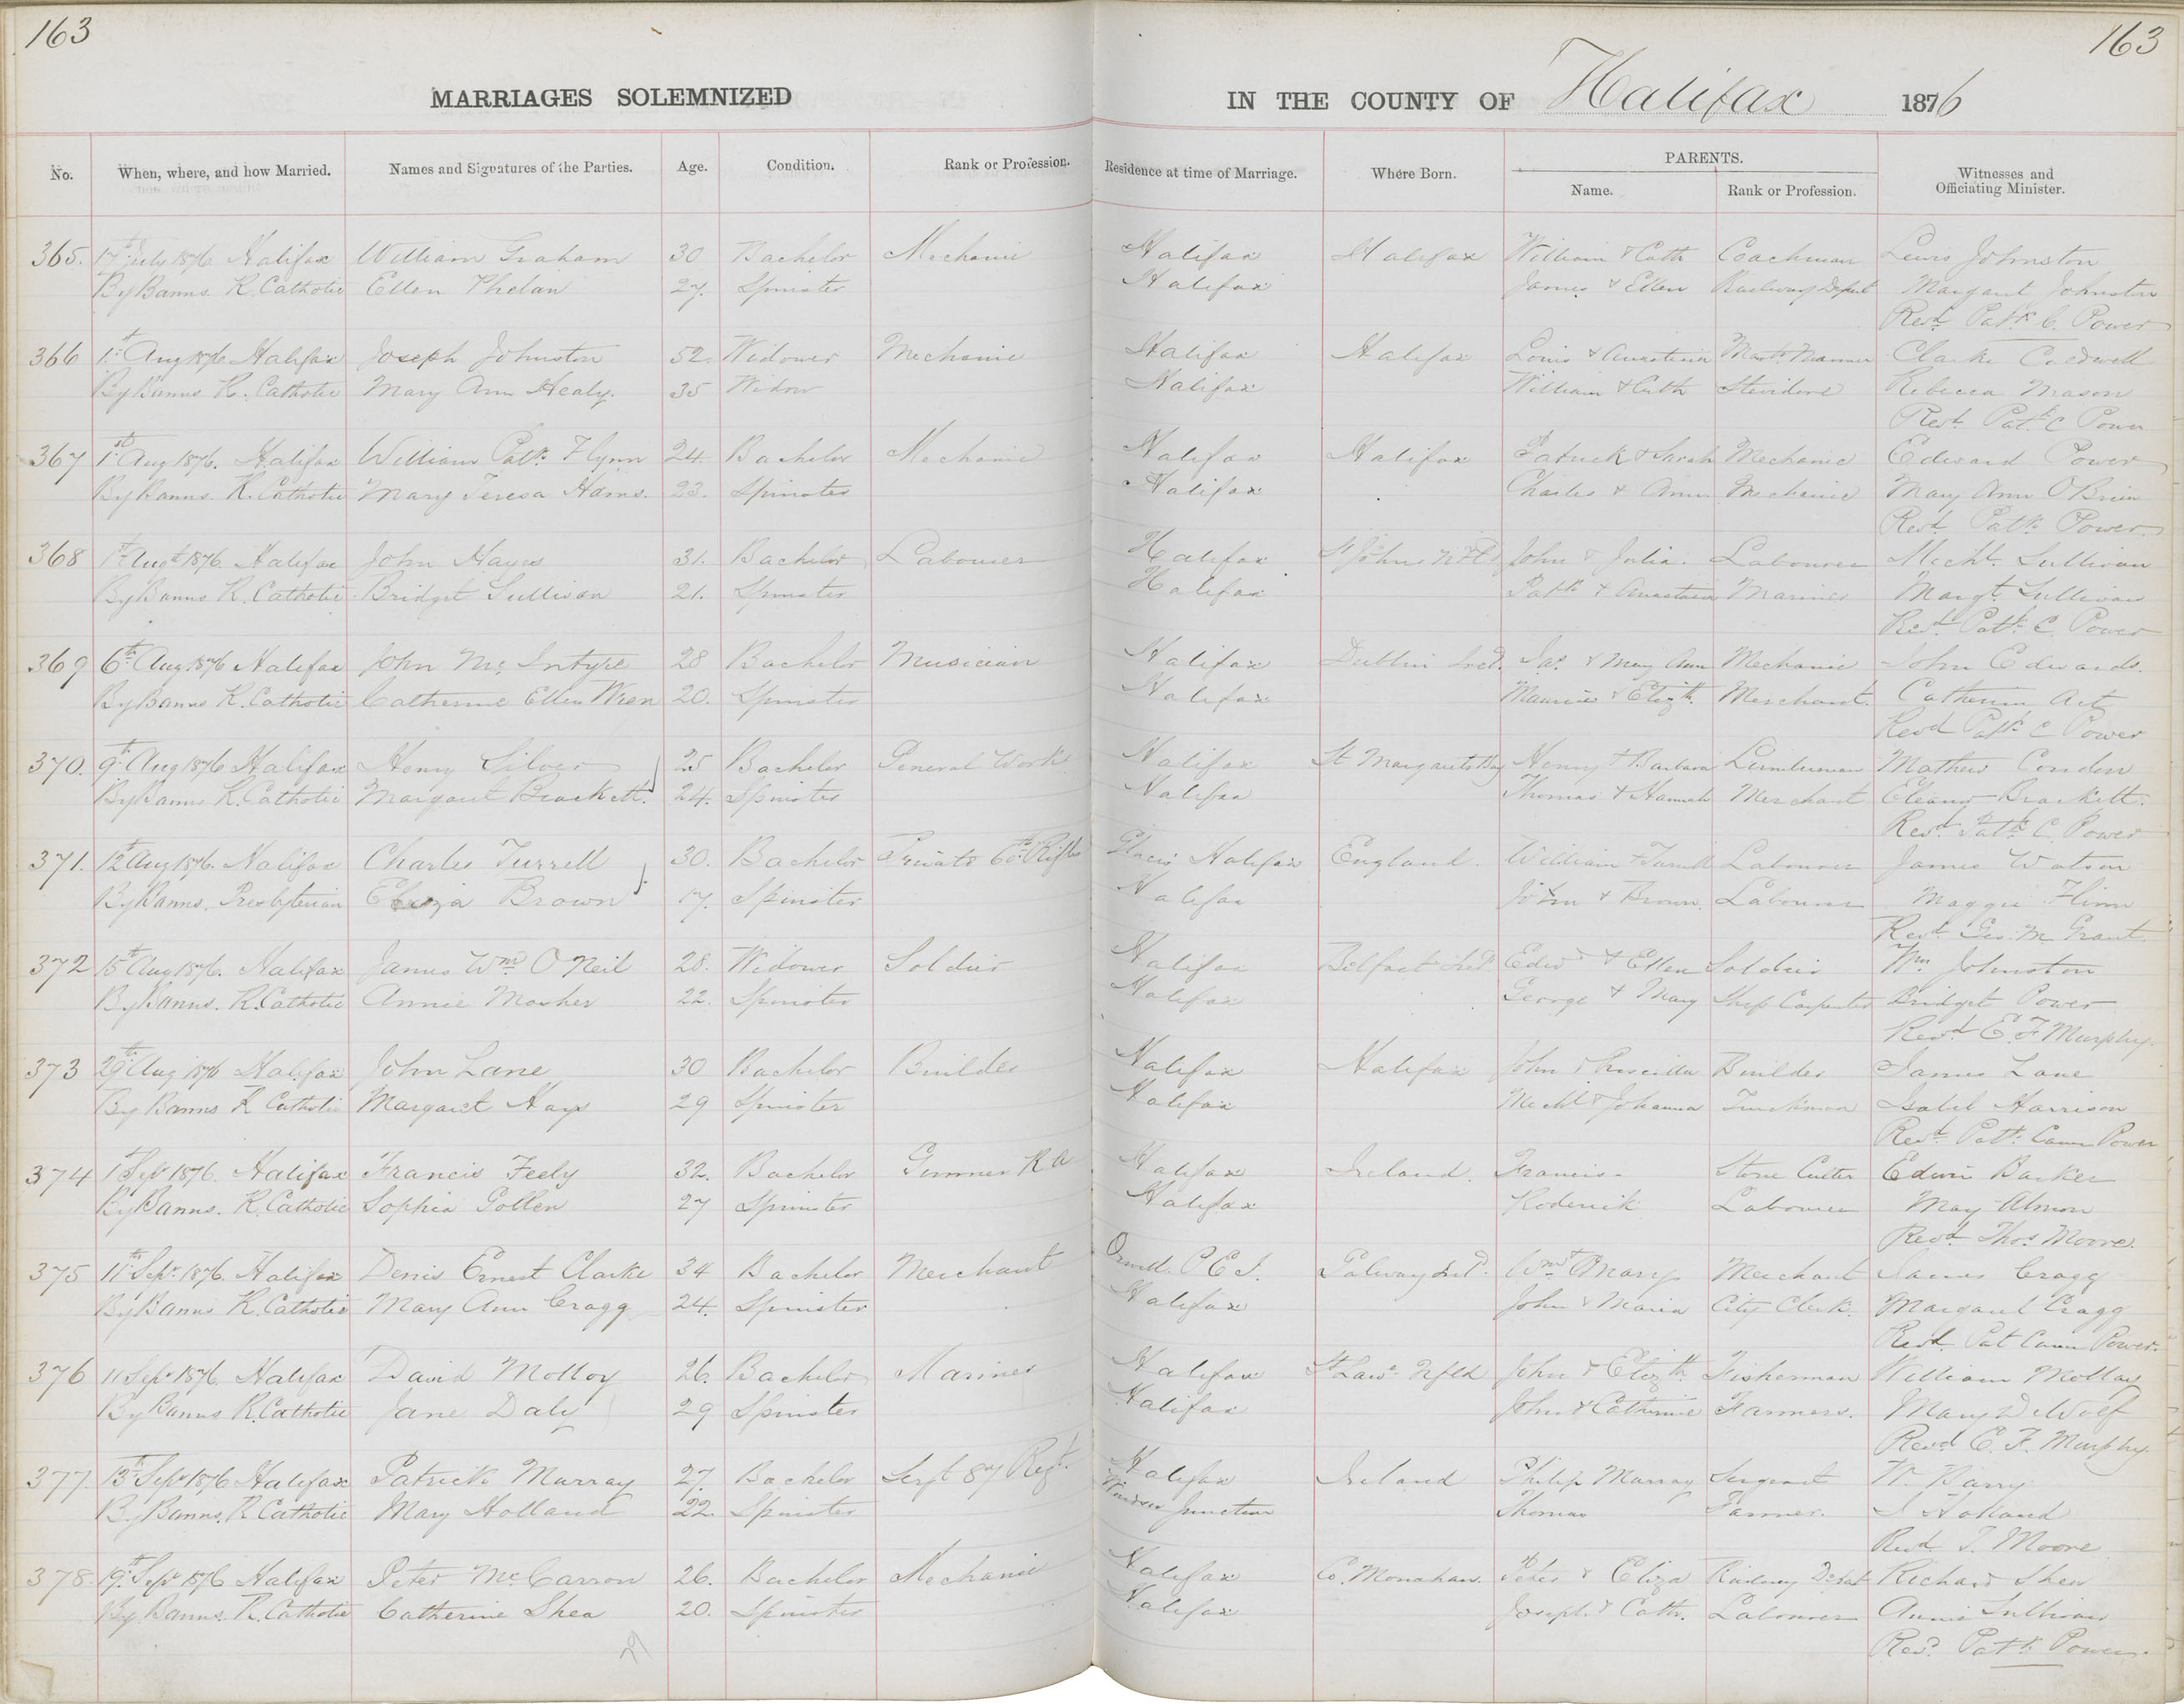 163
163
MARRIAGES SOLEMNIZED IN THE COUNTY OF Halifax 1876
No. When, where, and how Married. Names and Signatures of the Parties. Age. Condition. Rank or Profession. Residence at time of Marriage. Where Born. PARENTS. Name. Rank or Profession. Witnesses and Officiating Minister.
365. 17th July 1876 Halifax William Graham 30 Bachelor Mechanic Halifax Halifax William & Cath Coachman Lewis Johnston
By Banns R. Catholic Ellen Phelan 27. Spinster Halifax James & Ellen Railway Depot Margaret Johnston
Revd. Patk. C. Power
366 1st Aug 1876 Halifax Joseph Johnston 52. Widower Mechanic Halifax Halifax Louis & Mastr Mariner Clarke Caldwell
By Banns R. Catholic Mary Ann Healy. 35 Widow Halifax William & Cath Stevidore Rebecca Mason
Revt. Patk. C Power
367 1st Aug 1876. Halifax William Patk. Flynn 24. Bachelor Mechanic Halifax Halifax Patrick & Sarah Mechanic Edward Power
By Banns. R. Catholic Mary Teresa Harris. 23. Spinster Halifax Charles & Ann Mechanic Mary Ann O Brien
Revd. Patk. Power
368 1st Augt 1876. Halifax John Hayes 31. Bachelor Labourer Halifax St Johns Nfld John & Julia. Labourer Michl. Sullivan
By Banns R. Catholic Bridget Sullivan 21. Spinster Halifax Patk & Anastasia Mariner Margt. Sullivan
Revd. Patk. C. Power
369 6th Aug. 1876 Halifax John Mc Intyre 28 Bachelor Musician Halifax Dublin Ireld. Jas. & Mary Ann Mechanic John Edwards.
By Banns R. Catholic Catherine Ellen Wren 20. Spinster Halifax Maurice & Elizth. Merchant. Catherine
Revd Patk C Power
370. 9th Aug 1876 Halifax Henry Silver 25 Bachelor General Work Halifax St Margarets Bay Henry & Barbara Lumberman Mathew Condon
By Banns R. Catholic Margaret Brackett. 24. Spinster Halifax Thomas & Hannah Merchant Eleanor Brackett.
Revd. Patk C. Power
371. 12th Aug 1876. Halifax Charles Turrell 30. Bachelor Private 60th Rifles Glacis Halifax England. William & Turrell Labourer James Watson
By Banns. Presbyterian Eliza Brown 17. Spinster Halifax John & Brown. Labourer Maggie Flinn
Revd. Geo. M Grant
372 15th Aug 1876. Halifax James Wm O Neil 28. Widower Soldier Halifax Belfast Ireld. Edwd & Ellen Soldier Wm. Johnston
By Banns. R. Catholic Annie Mosher 22. Spinster Halifax George & Mary Ship Carpenter Bridget Power
Revd E. F Murphy.
373 29th Aug 1876 Halifax John Lane 30 Bachelor Builder Halifax Halifax John & Priscilla Builder James Lane
By Banns R Catholic Margaret Hays 29 Spinster Halifax Michl & Johanna Truckman Isabel Harrison
Revd. Patk. Canon Power
374 1st Sept 1876. Halifax Francis Feely 32. Bachelor Gunner R A Halifax Ireland. Francis Stone Cutter Edwin Barker
By Banns. R. Catholic Sophia Gollen 27 Spinster Halifax Roderick Labourer May Almon
Revd. Thos. Moore.
375 11th Sept. 1876. Halifax Denis Ernest Clarke 34 Bachelor Merchant Orwell. P E I. Galway Ireld. Wm & Mary Merchant James Cragg
By Banns R. Catholic Mary Ann Cragg 24. Spinster Halifax John & Maria City Clerk. Margaret Cragg
Revd. Pat Canon Power.
376 11 Sept 1876. Halifax David Molloy 26. Bachelor Mariner Halifax St Lawr. Nfld John & Elizth Fisherman William Molloy
By Banns R. Catholic Jane Daly 29 Spinster Halifax John & Catherine Farmers. Mary DeWolf
Revd E. F. Murphy.
377. 13th Sept 1876 Halifax Patrick Murray 27. Bachelor Sergt 87 Regt. Halifax Ireland Philip Murray Sergeant W. Parry
By Banns. R Catholic Mary Holland 22. Spinster Windsor Junction Thomas Farmer. J Holland
Revd. T. Moore
378. 19th Sept 1876 Halifax Peter Mc Carron 26. Bachelor Mechanic Halifax Co. Monahan. Peter & Eliza Railway Depot Richard Shea
By Banns. R. Catholic Catherine Shea 20. Spinster Halifax Joseph & Cath. Labourer Annie Sullivan
Revd. Patk Power.